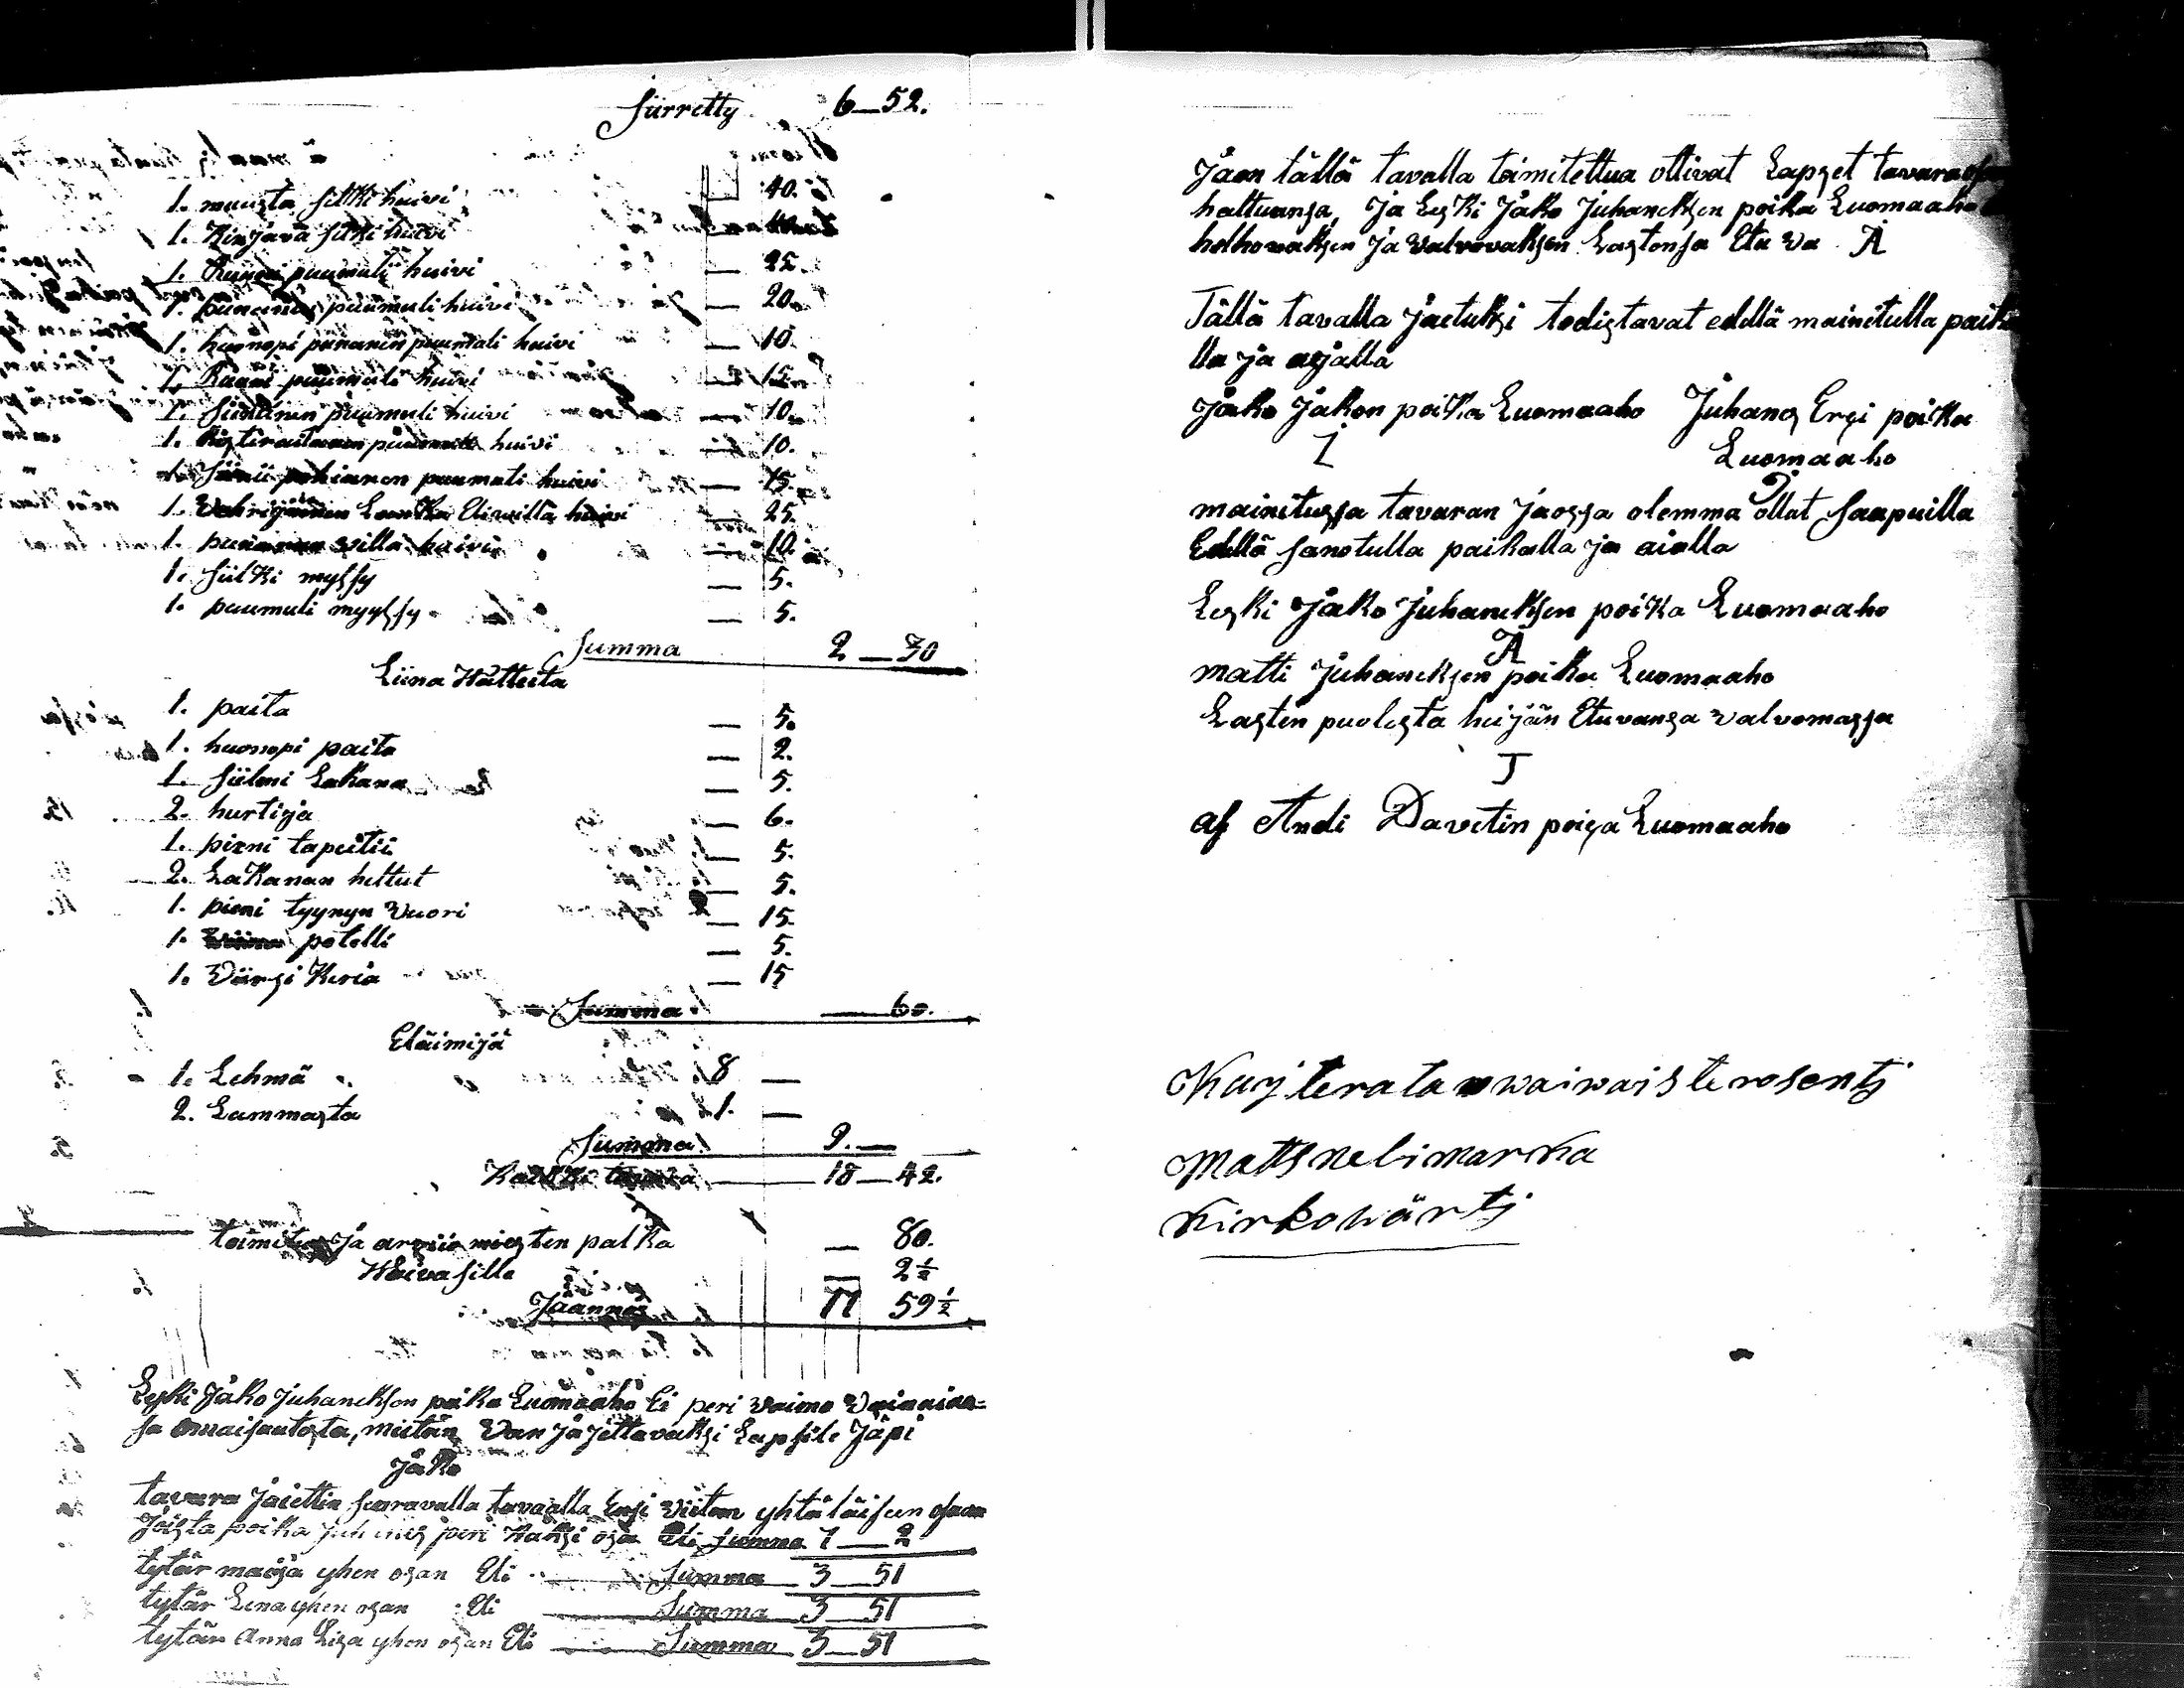 Siirretty 6 — 52.
1. musta silkki huivi — 40.
1. Kirjava silki huivi — 40.
1. Ruuni puumuli huivi — 25.
1. punanen puumuli huivi — 20.
1. huonopi punanen puumuli huivi — 10.
1. Raani puumuli huivi — 15.
1. Siniänen puumuli huivi — 10.
1. puumuli huivi — 10.
1. Sinii pohianen puumuli huivi — 15.
1. huivi — 25.
1. punanen villa huivi — 10.
1. Siilki myssy — 5.
1. puumuli myyssy — 5.
Summa 2 — 30
Liina Vatteita
1. paita — 5.
1. huonopi paita — 2.
1. Lakana — 5.
2. hurtija — 6.
1. pieni tapeitii — 5.
2. Lakanan heltut — 5.
1. pieni tyynyn Vuori — 15.
1. potelli — 5.
1. Värsi Keriä — 15
Summa — 60.
Eläimijä
1. Lehmä 8 —
2. Lammasta 1. —
Summa 9. —
Kaikki tavara — 18 — 42.
toimitus ja arviio miesten palka — 80.
Vaivasille — 2½
Jäännös 17 59½
Leski Jako Juhaneksen poika Luomaaho Ei peri vaimo Vainaian-
sa omaisuutesta, mitän Van Jäjettavaksi Lapsile Jäpi
Jako
tavara Jaiettin seuravalla tavaalla yhtäläiseen osaan
Joista poika Juhanes peri Kaksi osa Eli Summa 7 — 2
tytär maija yhen osan Eli — Summa 3 — 51
tytär Lena yhen osan Eli — Summa 3 — 51
tytär Anna Lisa yhen osan Eli — Summa 3 — 51
Jaon tällä tavalla toimitettua ottivat Lapset
haltuansa, Ja Leski Jako Juhaneksen poika Luomaaho
holhovaksen Ja valvovaksen Lastensa Etu va Ä
Tällä tavalla Jaetuksi todistavat edellä mainitulla paika
lla ja ajalla
Jako Jakon poika Luomaaho Juhans Ersi poika
Luomaaho
mainitussa tavaran Jaossa olemma ollut saapuilla
Edellä sanotulla paikalla ja aialla
Leski Jako Juhaneksen poika Luomaaho
Ä
matti Juhaneksen poika Luomaaho
Lasten puolesta heijän Etuvansa valvomassa
af Andi Davetin poija Luomaaho
waiwaisterosentj
Matts nelimarka
kirkowärtj